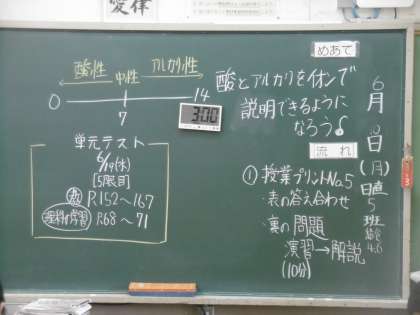 めあて
酸とアルカリをイオンで
説明できるように
なろう
流れ
① 授業プリントNo.5
・表の答え合わせ
・裏の問題
演習→解説
(10分)
6月10日(月)
日直
5班
酸性 中性 アルカリ性
0 7 14
3:00
単元テスト
6/19(水)
[5限目]
P.152〜167
理科の学習 P.68〜71